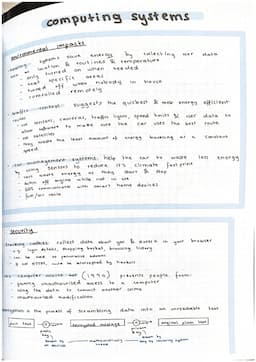 computing systems
environmental impacts
heating systems save energy by collecting user data
such as location & routines & temperature
- only turned on when needed
- heat specific areas
- turned off when nobody in house
- controlled remotely
traffic control: suggests the quickest & most energy efficient
routes
- use sensors, cameras, traffic lights, speed limits & user data to
allow software to make sure the car uses the best route
- satellites
- they the least amount of energy travelling at a constant
speed
car management systems: help the car to waste less energy
by using sensors to reduce it's climate footprint
- cars waste energy as they start & stop
- turn off engine while not in use
- communicate with smart home devices
security
tracking cookies: collect data about you & stored in your browser
- e.g. login details, shopping basket, browsing history
- can be used to personalise adverts
- if not , could be intercepted by hackers
computer misuse act (1990) prevents people from:
- gaining unauthorised access to a computer
- using the data to commit another crime
- unauthorised modification
encryption is the process of scrambling data into an unreadable text
plain text
encrypted message
original plain text
public key
private key
known by
mathematically
known by